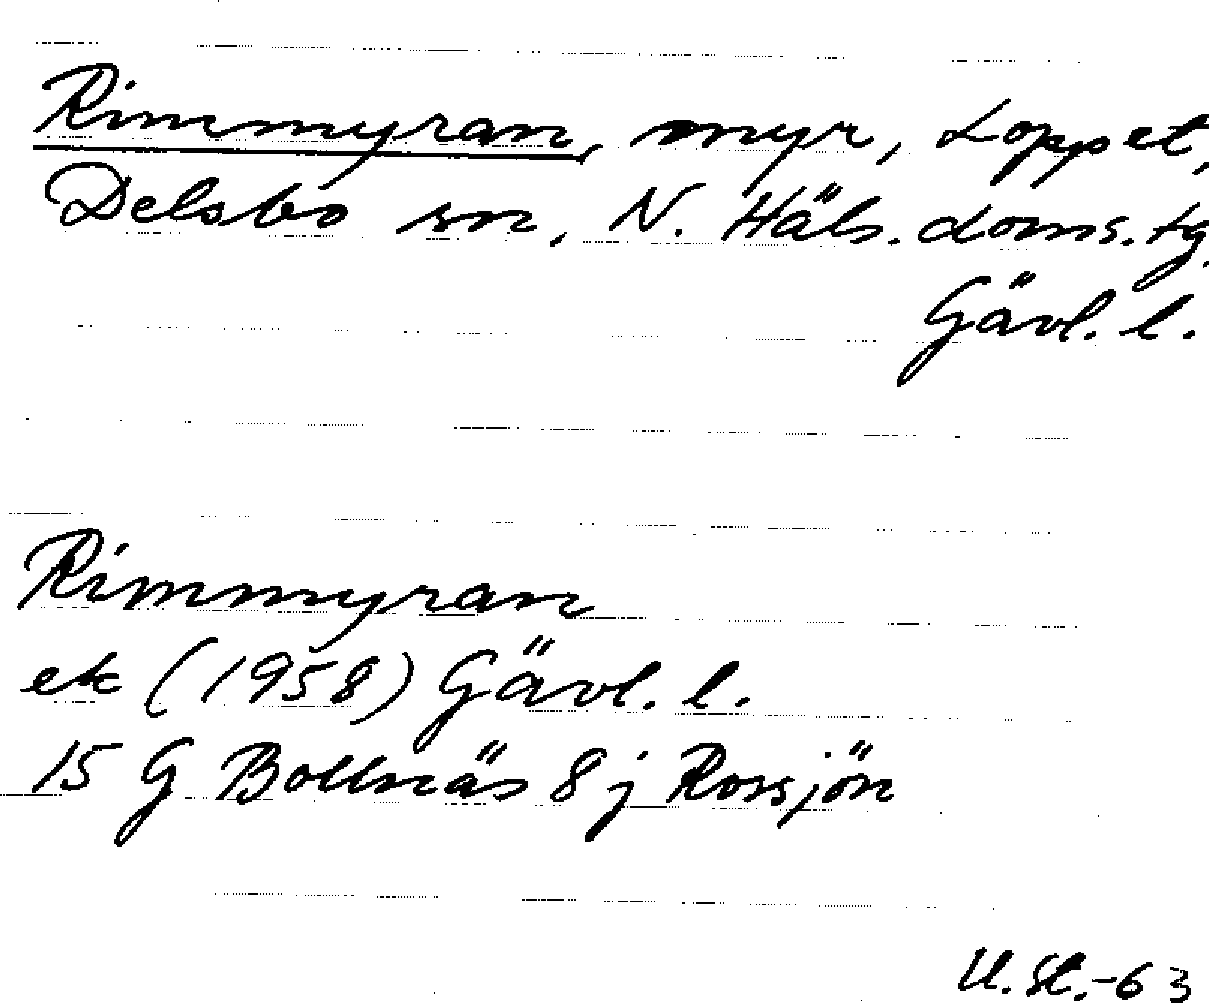 Rimmyran, myr, Loppet,
Delsbo sn, N. Häls. doms. tg
Gävl. l.
Rimmyran
ek (1958) Gävl. l.
15 G Bollnäs 8 j Rossjön
U. St. -63